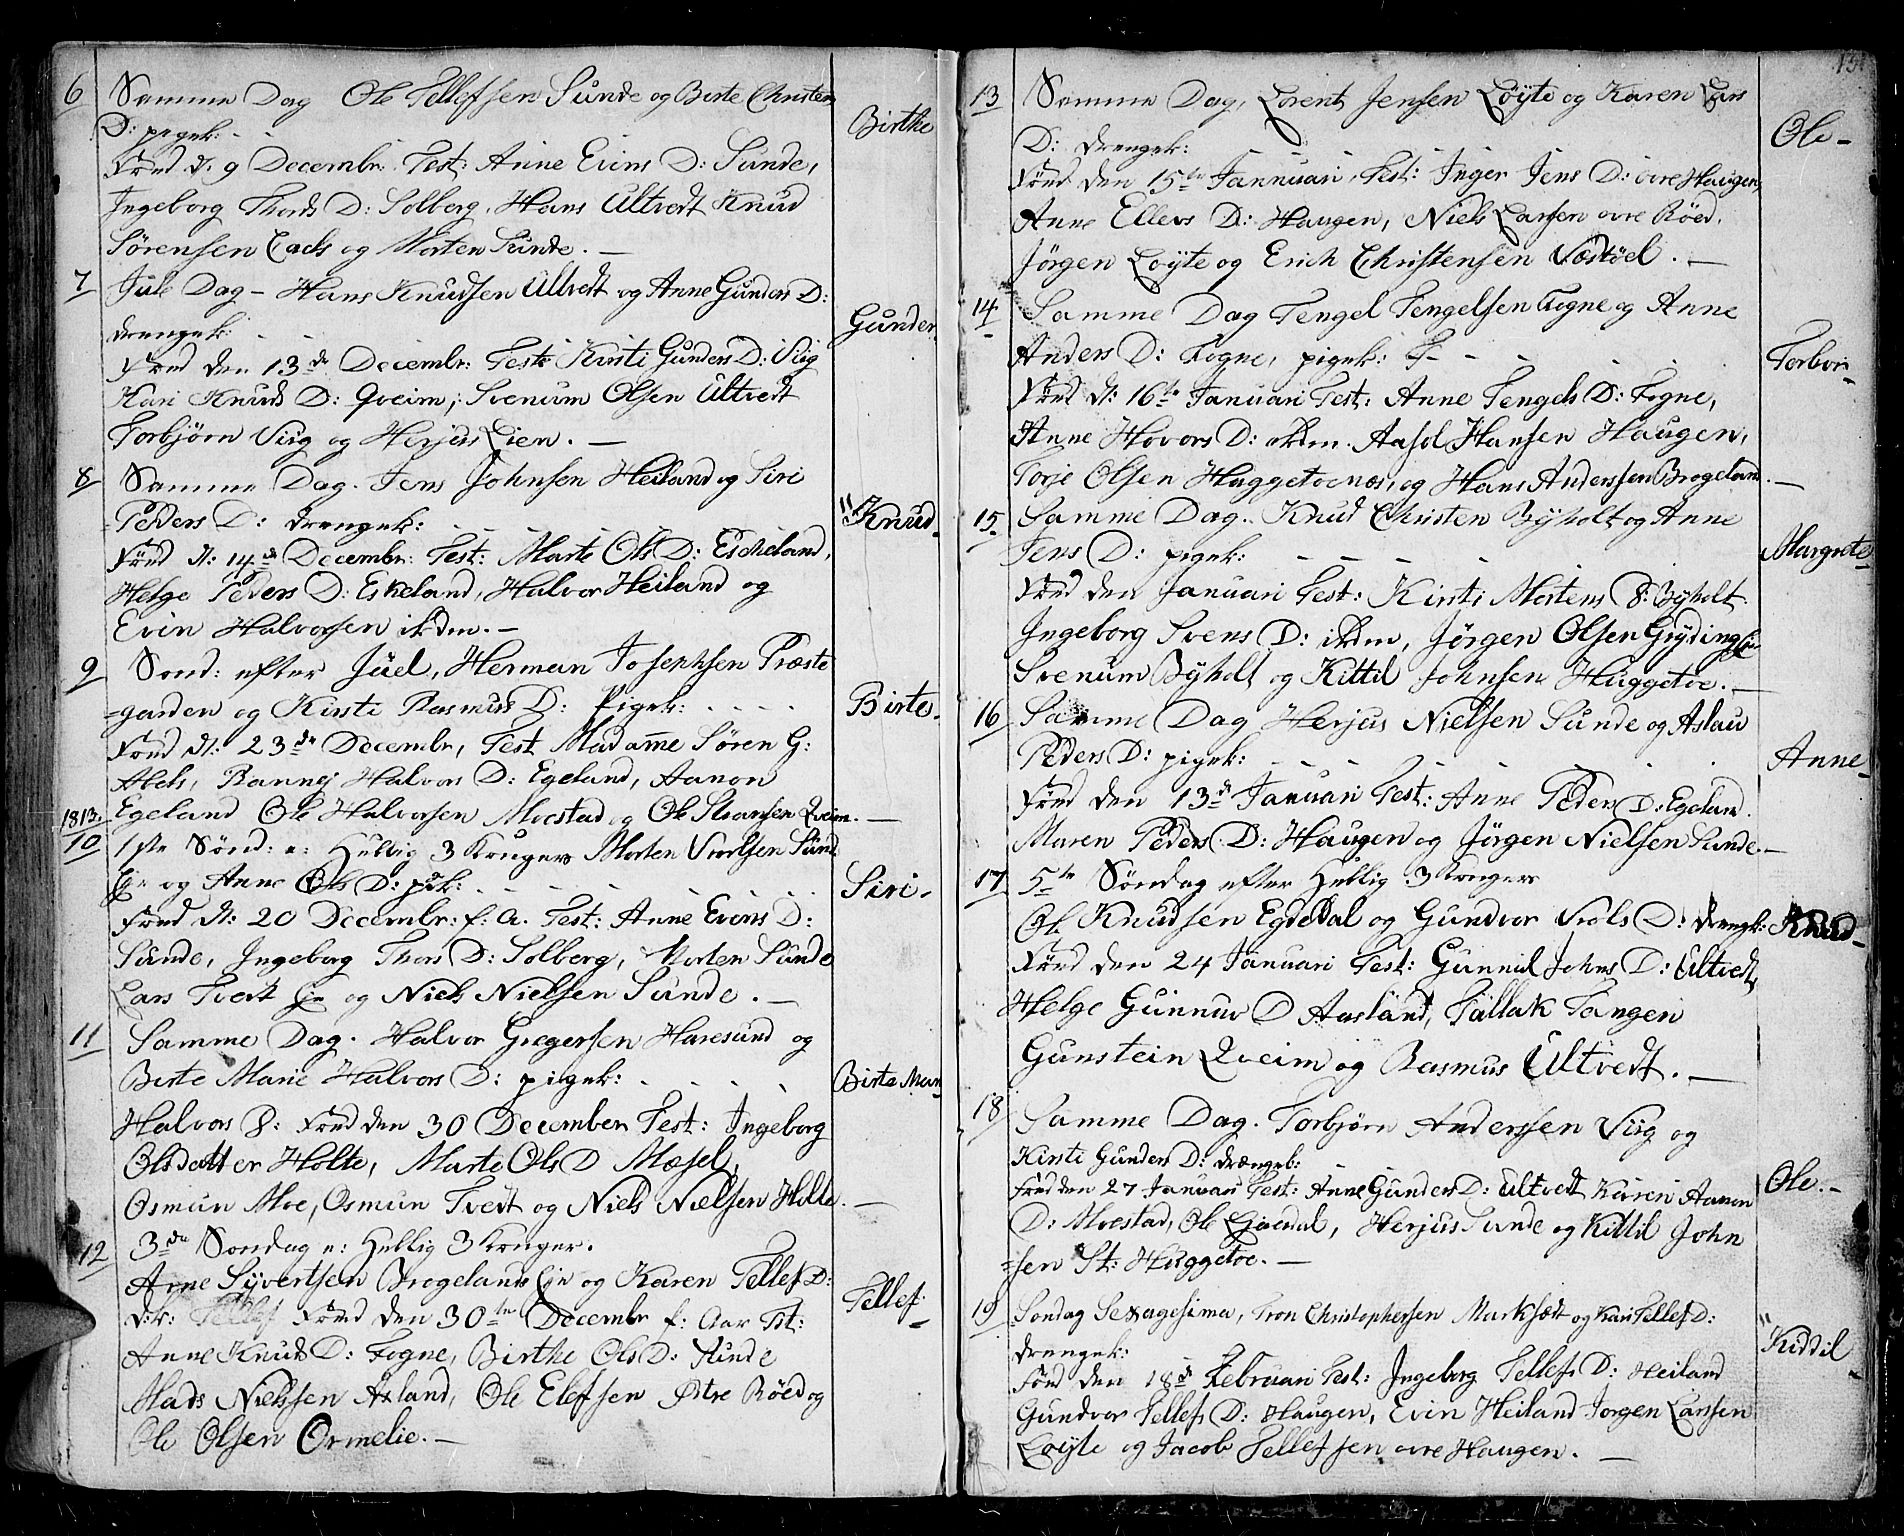 6 Samme Dag Ole Tellefsen Sunde og Birte Christen
D: pigek: - - Birthe
Fød d. 9 Decembr: Test: Anne Evins D: Sunde,
Ingeborg Thords D: Solberg, Hans Ultvedt Knud
Sörensen Lads og Morten Sunde. —
7 Jule Dag - Hans Knudsen Ultvedt og Anne Gunders D:
drengek: - - Gunder
Fød den 13de Decembr: Test: Kirsti Gunders D: Viig
Kari Knuds D: Qveim, Svenum Olsen Ultvedt
Torbjørn Viig og Herjus Lien. —
8 Samme Dag. Jens Johnsen Heiland og Siri
Peders D: drengek: - - - - "Knud
Fød d: 14de Decembr: Test: Marte Ols D: Escheland,
Helge Peders D: Eskeland, Halvor Heiland og
Evin Halvorsen ibdm. —
9 Sönd: efter Juel, Herman Josephsen Præste
=gaarden og Kirsti Rasmus D: Pigek: - - - - Birte
Fød d: 23de Decembr, Test Madame Søren G:
Abels, Rannei Halvors D: Egeland, Aanon
Egeland Ole Halvorsen Moestad og Ole Qveim. —
1813.
10 1ste Sönd: e: Hellig 3 Konger Morten Sund
Eje og Anne Ols D: pik: - - - - Siri -
Fød d: 20 Decembr: f: A. Test: Anne Evens D:
Sunde, Ingeborg Thors D: Solberg, Morten Sunde
Lars Tvedt Eje og Niels Nielsen Sunde. —
11 Samme Dag. Halvor Gregersen Haresund og
Birte Marie Halvors D: pigek: - - - - Birte Mari
Halvors D: Fød den 30 December Test: Ingeborg
Olsdatter Holte, Marte Ols D Mæsel,
Osmun Moe, Osmun Tvedt og Niels Nielsen Holte. —
12 3die Søndag e: Hellig 3 Konger.
Arne Syvertsen Brogeland Eie og Karen Tellefs D:
d:k: Tellef Fød den 30te Decembr f: Aar Tst: Tellef
Anne Knuds D: Fogne, Birthe Ols D: Sunde
Mads Nielssen Asland, Ole Elefsen Østre Röed og
Ole Olsen Ormelie. —
13 Samme Dag, Lorentz Jensen Löyte og Karen Lars
D: drengek: - - - - Ole -
Fød den 15de Jannuari, Test: Inger Jens D: øvre Haugen,
Anne Ellevs D: Haugen, Niels Larssen øvre Röed,
Jørgen Löyte og Erich Christensen Væstöel. —
14 Samme Dag Tengel Tengelsen Fogne og Anne
Anders D: Fogne, pigek: - - - Torbor
Fød d: 16te Januari Test: Anne Tengels D: Fogne,
Anne Hovors D: ibdm. Aasol Hansen Haugen,
Torje Olsen Huggetoenæs, og Hans Anderssen Brogeland. —
15 Samme Dag. Knud Christen Byholt og Anne
Jens D: pigek: - - - - Margrete
Fød den Januari Test: Kirsti Mortens D: Byholt
Ingeborg Svens D: ibdm, Jörgen Olsen Gryding Eie
Svenum Byholt og Kittil Johnsen Huggetoe. —
16 Samme Dag Herjus Nielsen Sunde og Aslau
Peders D: pigek: - - - - Anne
Fød den 13de Januari Test: Anne Peders D: Egeland
Maren Peders D: Haugen og Jörgen Nielsen Sunde. —
17 5te Søndag efter Hellig 3 Konger
Ole Knudsen Egedal og Gundvor D: drengk: Knud -
Fød den 24 Januari Test: Gunnil Johns D: Ultvedt,
Helge Gunnur D Aasland, Tallak Tangen
Gunstein Qveim og Rasmus Ultvedt. —
18 Samme Dag. Torbjørn Anderssen Viig og
Kirsti Gunders D: drængek: Ole. -
Fød den 27 Januari Test: Anne Gunders D: Ultvedt Karen Aanon
D: Moestad, Ole Herjus Sunde og Kittil John
=sen St: Huggetoe. —
19 Søndag Sexagesima, Tron Christophersen Marksædt og Kari Tellefs D:
drengek: "Kiddil
Fød den 18de Februari Test: Ingeborg Tellefs D: Heiland
Gundvor Tellefs D: Haugen, Evin Heiland Jorgen Larssen
Löyte og Jacob Tellefssen øvre Haugen. —